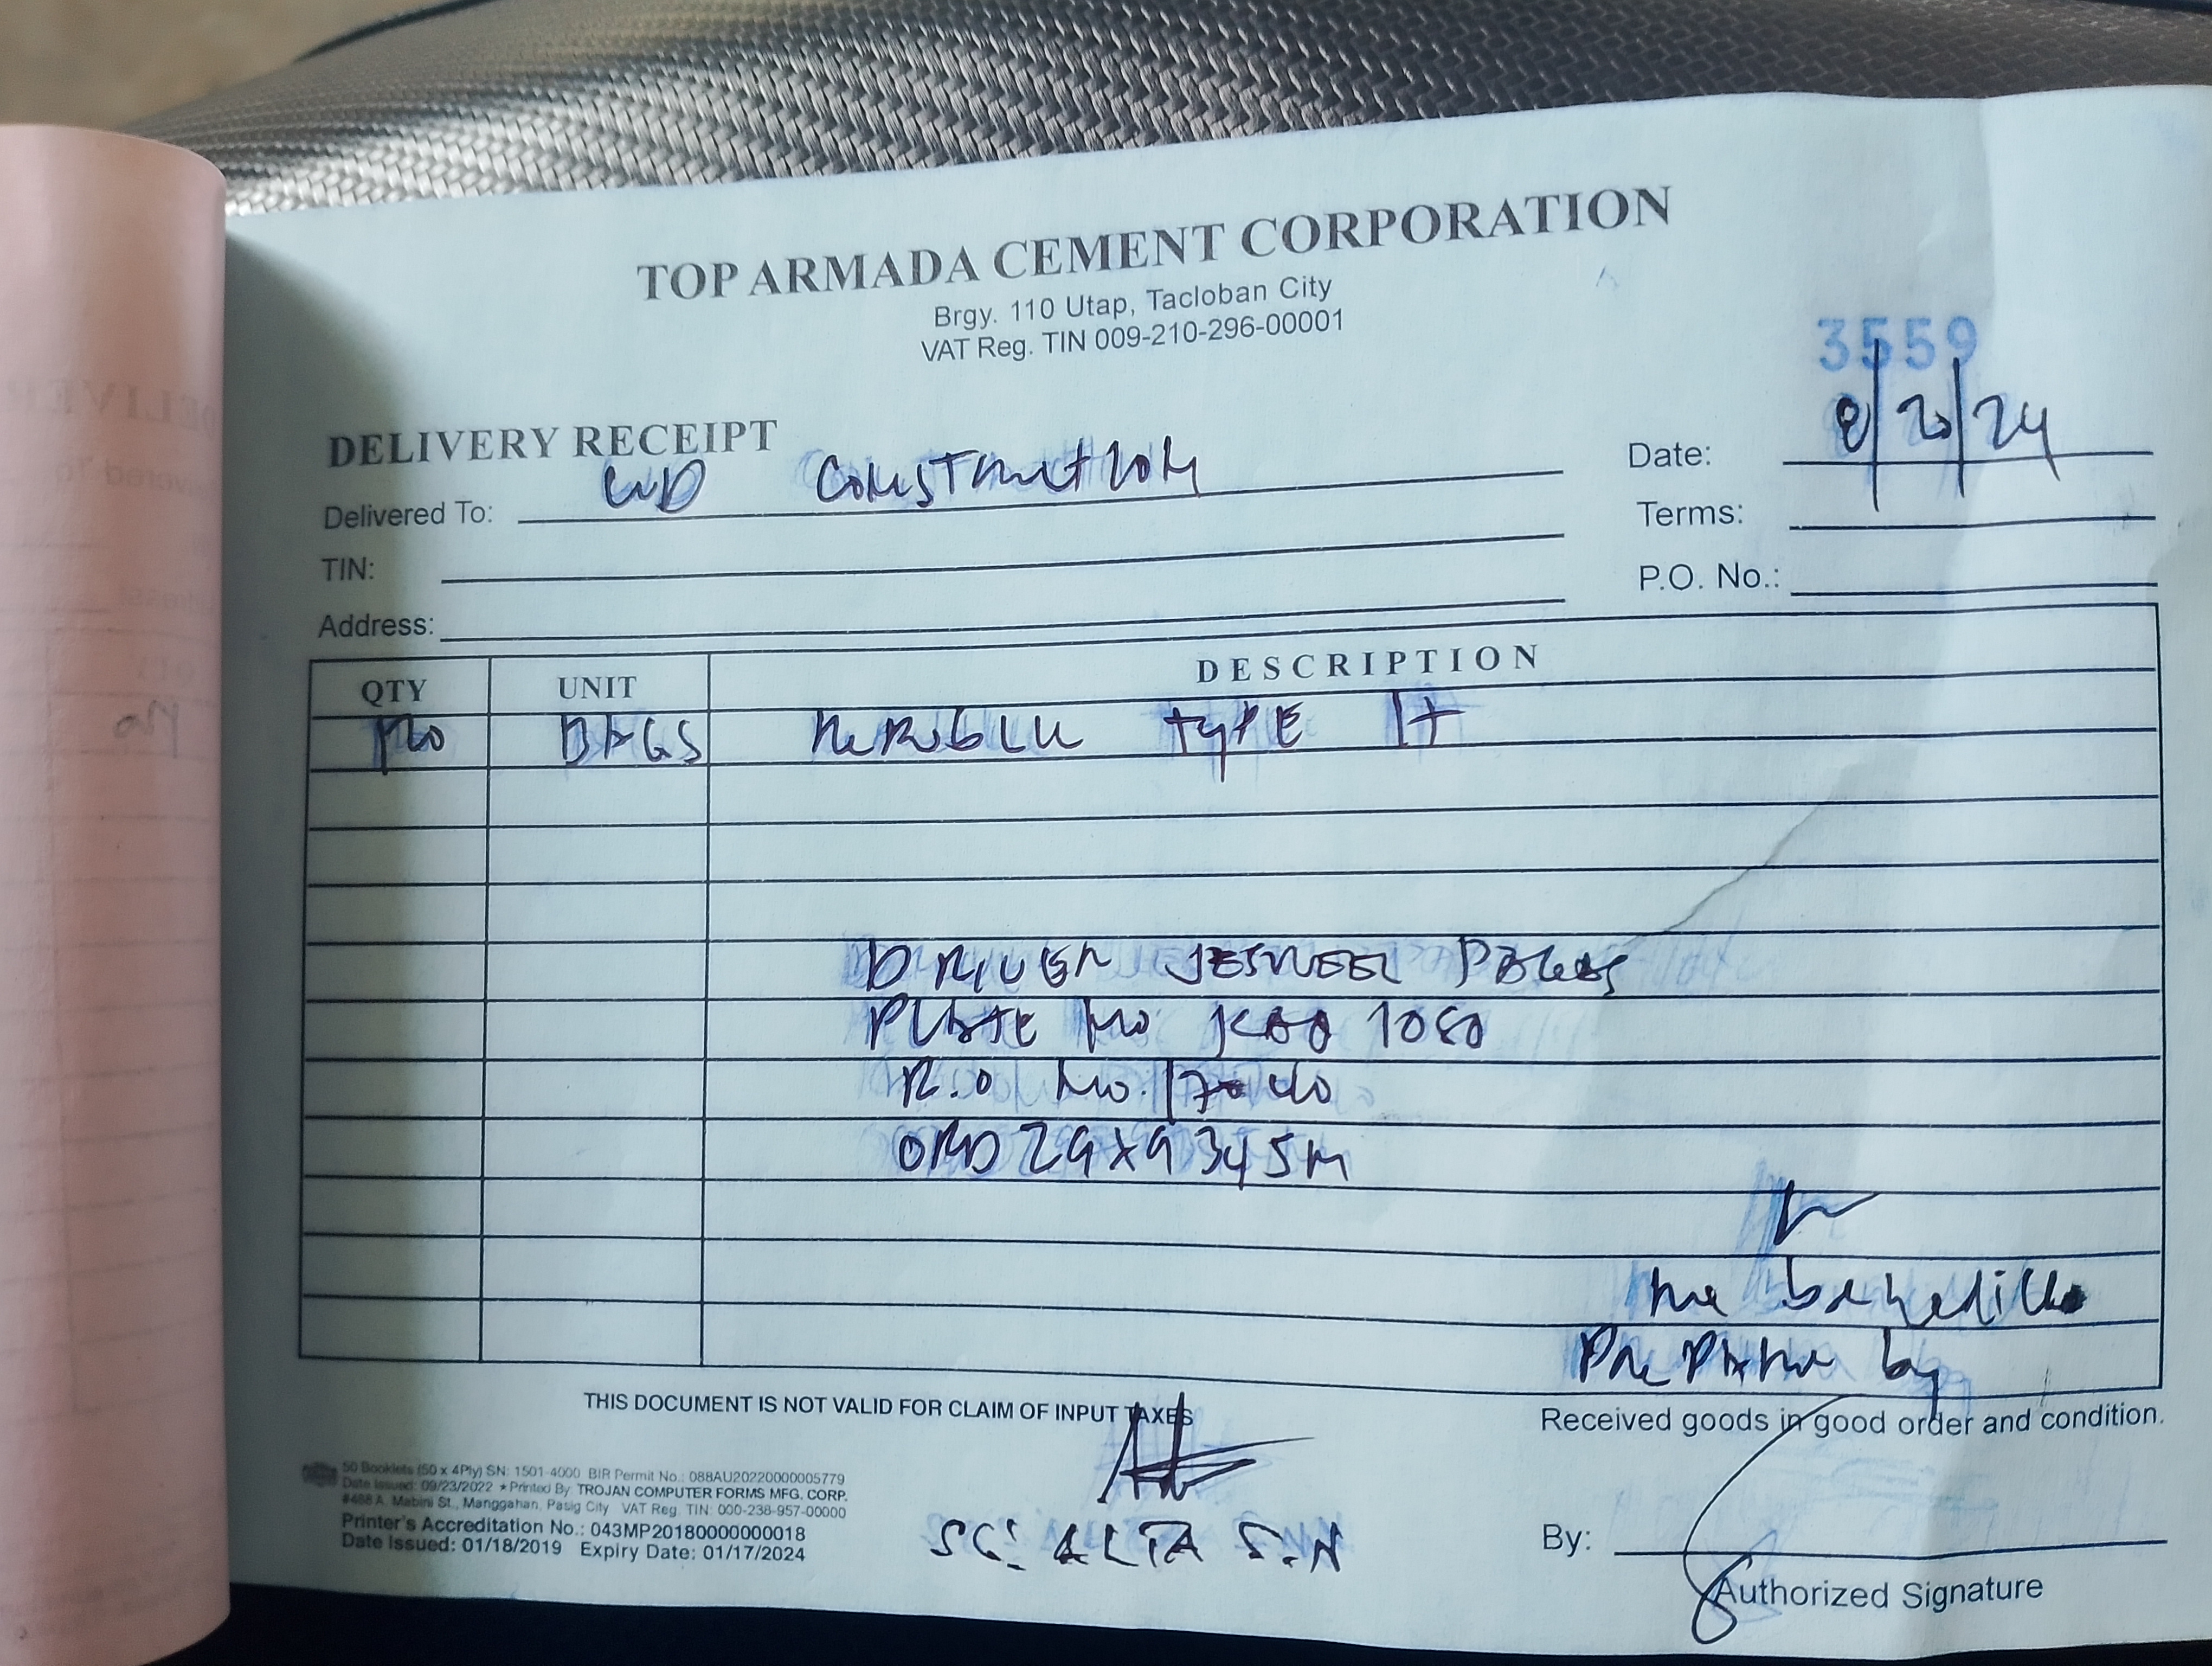 TOP ARMADA CEMENT CORPORATION
Brgy. 110 Utap, Tacloban City
VAT Reg. TIN 009-210-296-00001
3559
DELIVERY RECEIPT
Date: 8/20/24
Delivered To: Construction
Terms:
TIN:
P.O. No.:
Address:
QTY UNIT DESCRIPTION
BAGS TYPE 1T
DRIVER
PLATE No. 1080
R.O No.
by
THIS DOCUMENT IS NOT VALID FOR CLAIM OF INPUT TAXES
Received goods in good order and condition.
50 Booklets (50 x 4Ply) SN: 1501-4000 BIR Permit No.: 088AU20220000005779
Date Issued: 09/23/2022 * Printed By: TROJAN COMPUTER FORMS MFG. CORP.
#468 A. Mabini St., Manggahan, Pasig City VAT Reg. TIN: 000-238-957-00000
Printer's Accreditation No.: 043MP20180000000018
Date Issued: 01/18/2019 Expiry Date: 01/17/2024
SG: ALTA S.N
By:
Authorized Signature